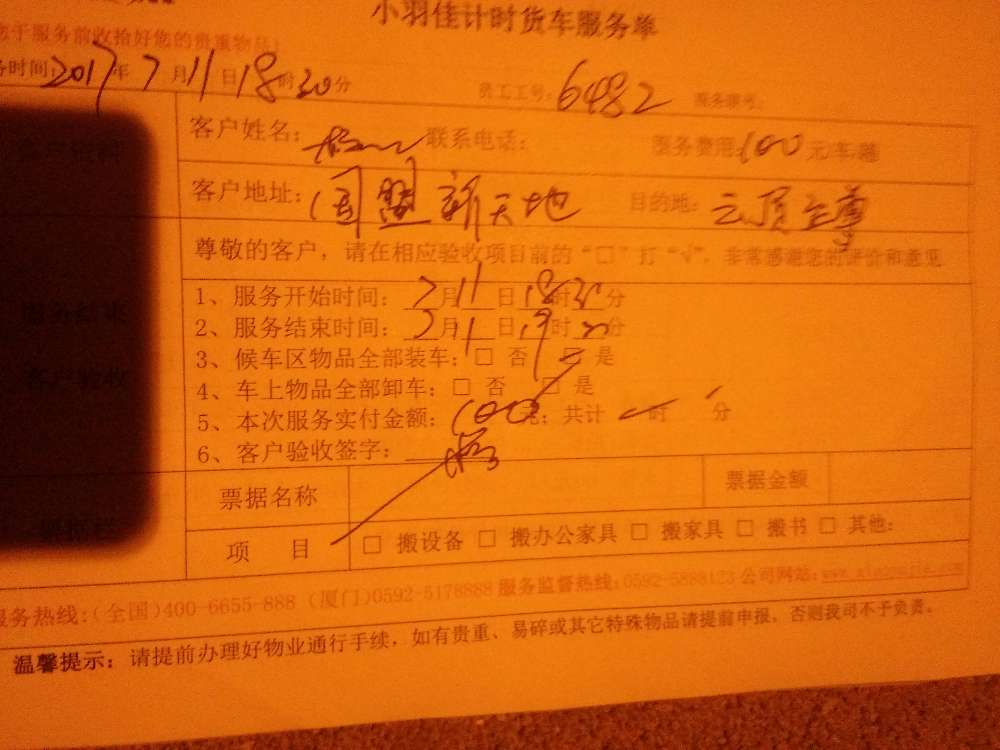 小羽佳计时货车服务单
您于服务前收拾好您的贵重物品!
务时间:2017年7月11日18时30分 员工工号:6482 服务单号:
客户姓名: 联系电话: 服务费用:100元/车/趟
客户地址:国盟新天地 目的地:云顶至尊
尊敬的客户,请在相应验收项目前的“□”打“√”,非常感谢您的评价和意见
服务结束
客户验收
1、服务开始时间:7月11日18时30分
2、服务结束时间:7月11日19时 分
3、候车区物品全部装车:□ 否 □ 是
4、车上物品全部卸车:□ 否 □ 是
5、本次服务实付金额:100元;共计 时 分
6、客户验收签字:
票据名称 票据金额
项 目 □ 搬设备 □ 搬办公家具 □ 搬家具 □ 搬书 □ 其他:
服务热线:(全国)400-6655-888 (厦门)0592-5178888 服务监督热线:0592-5888123 公司网站:
温馨提示:请提前办理好物业通行手续,如有贵重、易碎或其它特殊物品请提前申报,否则我司不予负责。